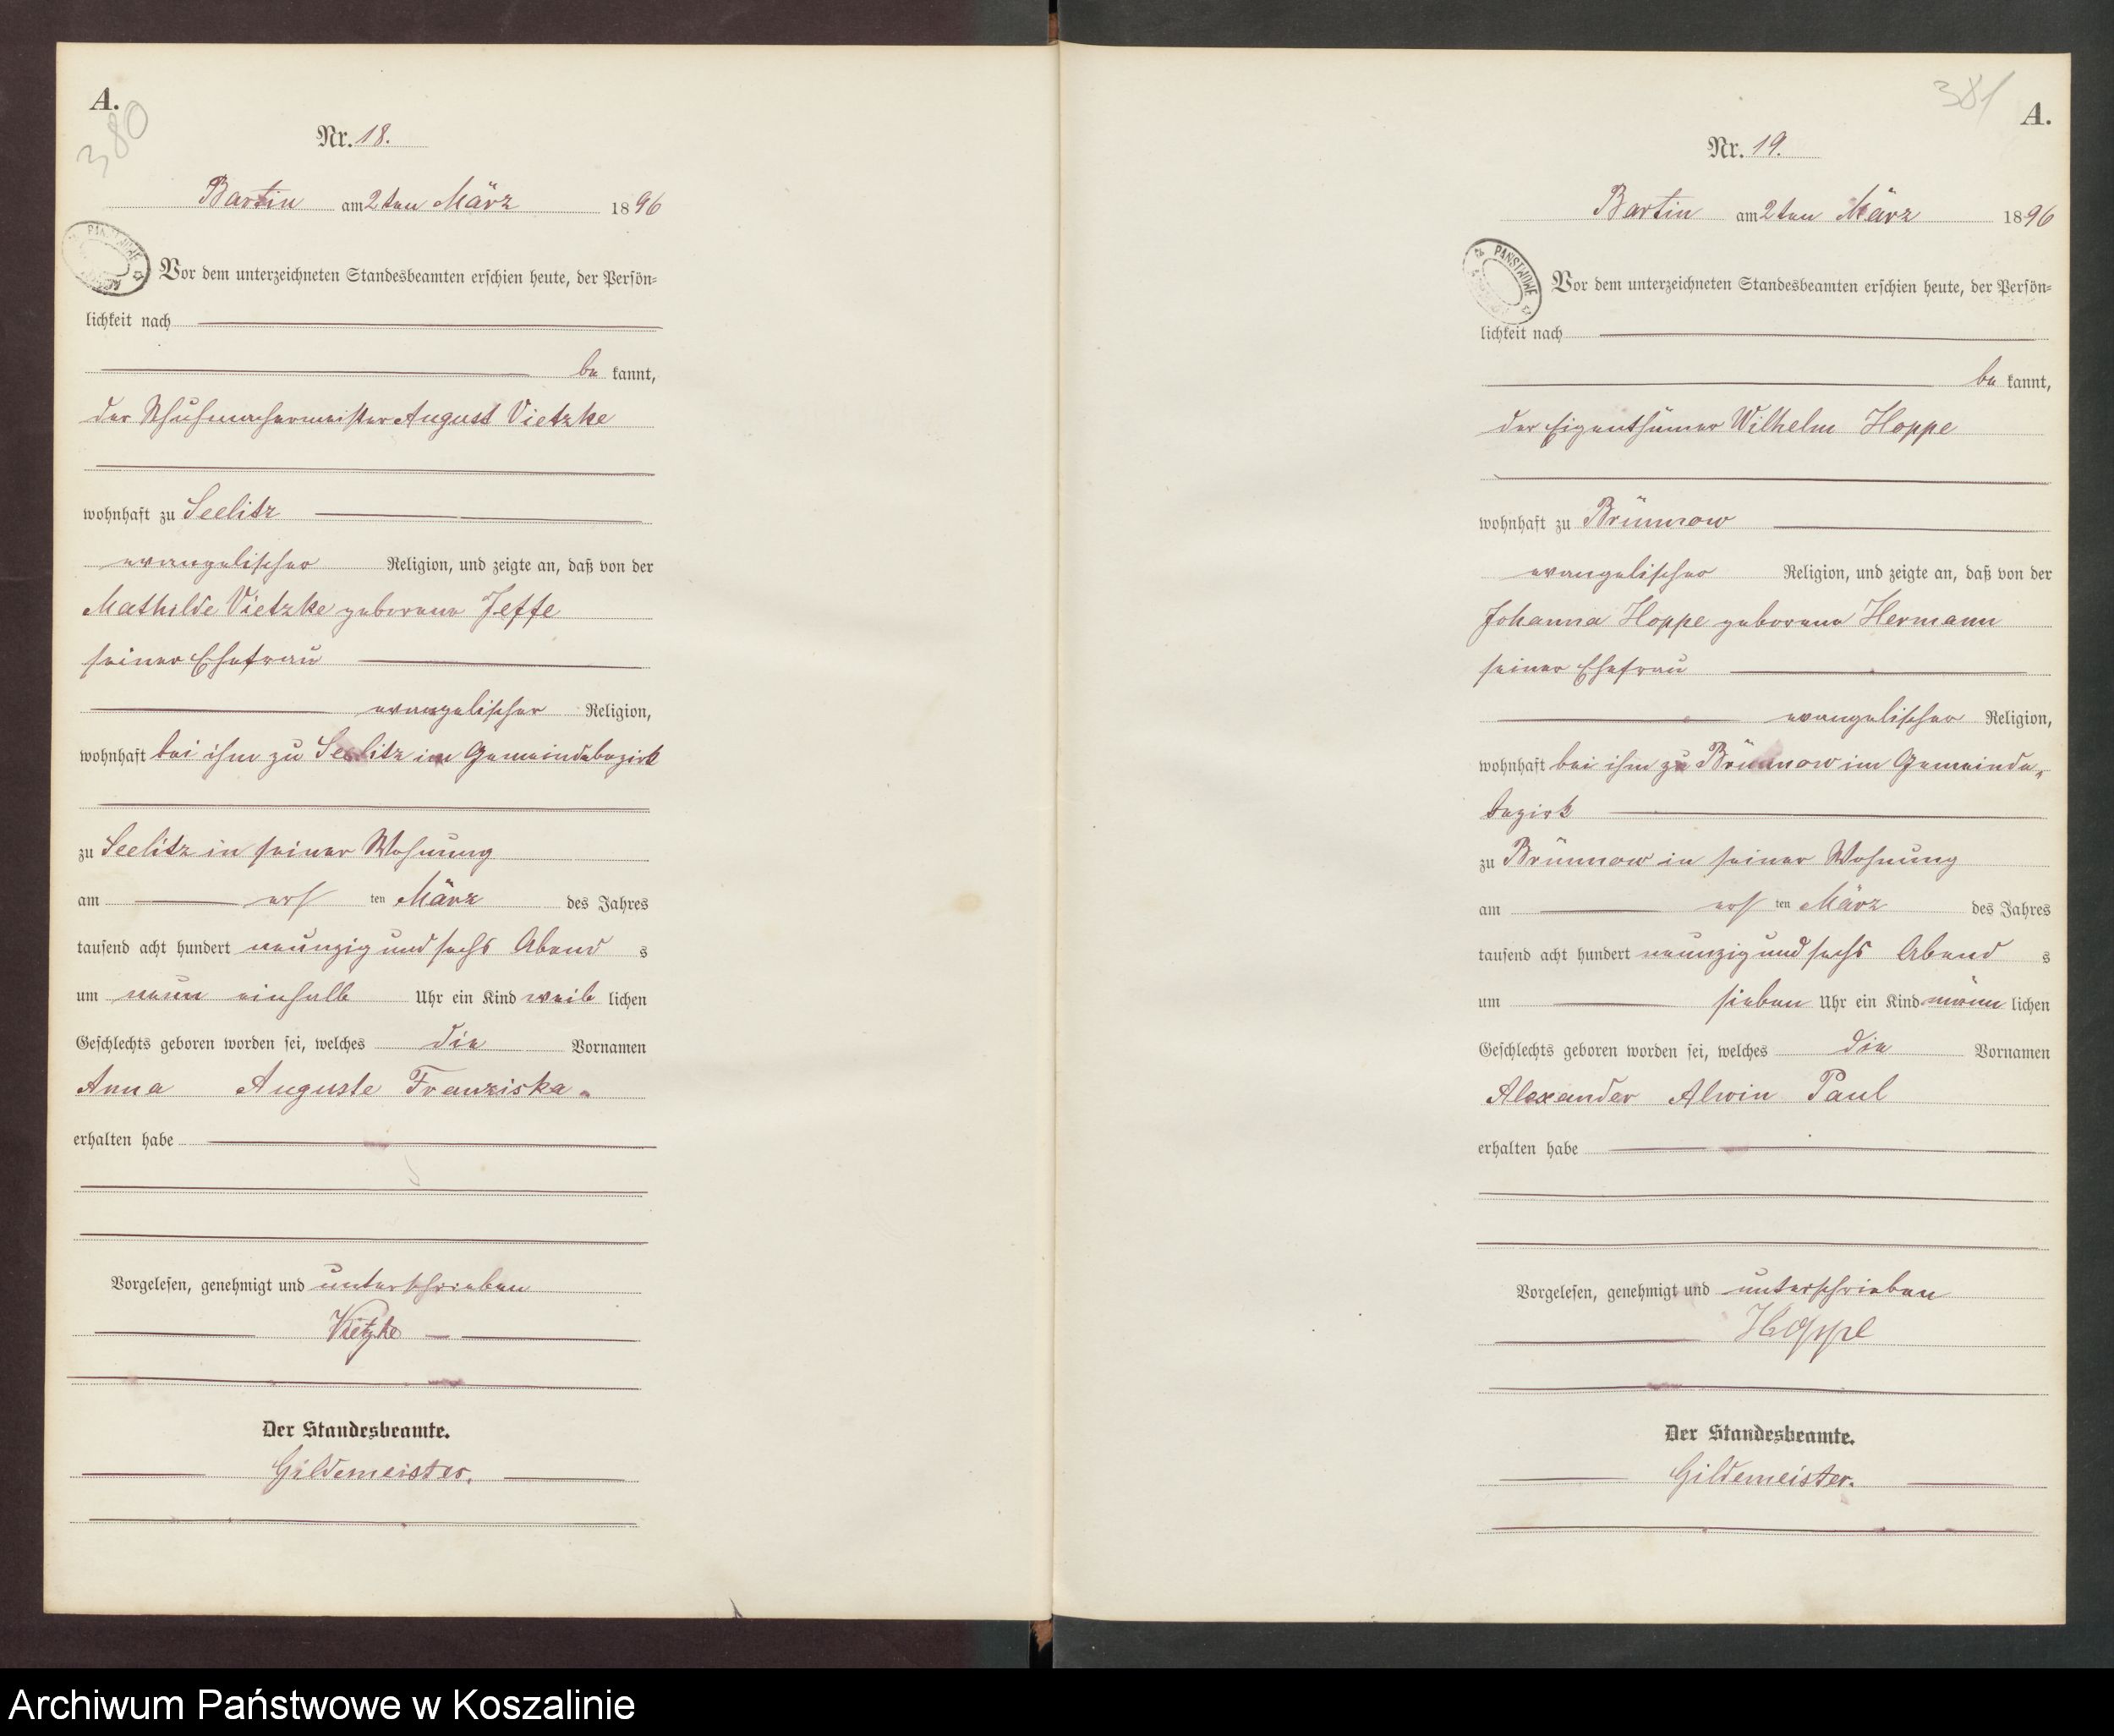 A.
380
Nr. 18.
Bartin am 2ten März 1896
Vor dem unterzeichneten Standesbeamten erschien heute, der Persön=
lichkeit nach
be kannt,
der Schuhmachermeister August Vietzke
wohnhaft zu Seelitz
evangelischer Religion, und zeigte an, daß von der
Mathilde Vietzke geborene Jeffe
seiner Ehefrau
evangelischer Religion,
wohnhaft bei ihm zu Seelitz im Gemeindebezirk
zu Seelitz in seiner Wohnung
am ers ten März des Jahres
tausend acht hundert neunzig und sechs Abend s
um neun einhalb Uhr ein Kind weib lichen
Geschlechts geboren worden sei, welches die Vornamen
Anna Auguste Franziska
erhalten habe
Vorgelesen, genehmigt und unterschrieben
Vietzke
Der Standesbeamte.
Gildemeister.
381
A.
Nr. 19.
Bartin am 2ten März 1896
PAŃSTWOWE
Vor dem unterzeichneten Standesbeamten erschien heute, der Persön=
lichkeit nach
be kannt,
der Eigenthümer Wilhelm Hoppe
wohnhaft zu Brünnow
evangelischer Religion, und zeigte an, daß von der
Johanna Hoppe geborene Hermann
seiner Ehefrau
evangelischer Religion,
wohnhaft bei ihm zu Brünnow im Gemeinde„
bezirk
zu Brünnow in seiner Wohnung
am ers ten März des Jahres
tausend acht hundert neunzig und sechs Abend s
um sieben Uhr ein Kind männ lichen
Geschlechts geboren worden sei, welches die Vornamen
Alexander Alwin Paul
erhalten habe
Vorgelesen, genehmigt und unterschrieben
Hoppe
Der Standesbeamte.
Gildemeister.
Archiwum Państwowe w Koszalinie